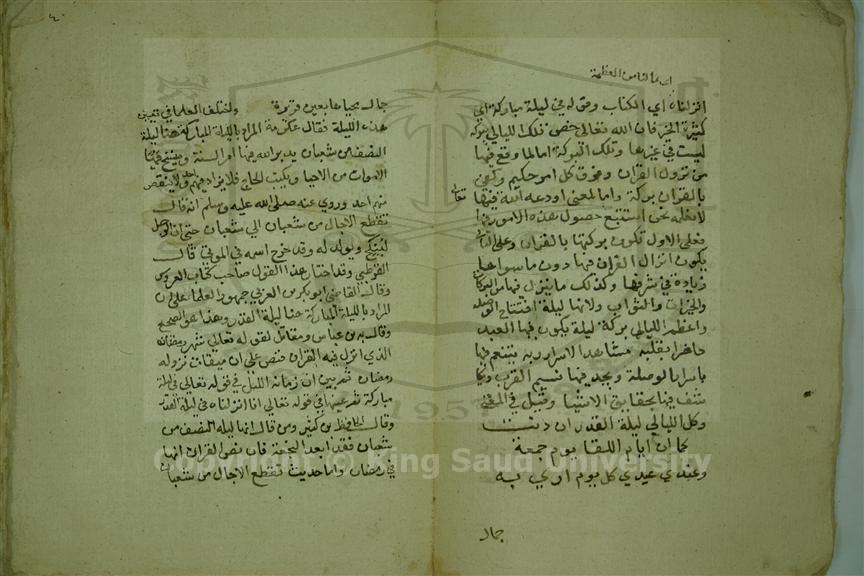 اي بمالنا من العظمة
انزلناه اي الكتاب وقوله في ليلة مباركة اي
كثيرة الخير فان الله تعالى خص تلك الليالي ببركة
ليست في غيرها وتلك البركة اما لما وقع فيها
من نزول القران ومن فرق كل امر حكيم وكفى
بالقران بركة واما لمعنى اودعه الله فيها
تعالى
لا نعقله نحن استتبع حصول هذه الامور فيها
فعلى الاول تكون بركتها بالقران وعلى الثاني
يكون انزال القران فيها دون ما سواها
زيادة في شرفها وكذلك ما ينزل فيها من البركات
والخيرات والثواب ولانها ليلة افتتاح الوصلة
واعظم الليالي بركة ليلة يكون فيها العبد
حاضرا بقلبه مشاهدا لاسرار ربه يتنعم فيها
باسرار الوصلة ويجد فيها نسيم القرب
فيها بحقايق الاشيا وقيل في المعنى
وكل الليالي ليلة القدر ان دنت
كما ان ايام اللقا يوم جمعة
وعندي عيدي كل يوم ارى به
جمال
٤
جمال محياها بعين قريرة واختلف العلما في تعيين
هذه الليلة فقال عكرمة المراد بالليلة المباركة هنا ليلة
النصف من شعبان يدبر الله فيها امر السنة وينسخ فيها
الاموات من الاحيا ويكتب الحاج فلا يزاد فيهم احد ولا ينقص
منهم احد وروي عنه صلى الله عليه وسلم انه قال
تقطع الاجال من شعبان الي شعبان حتى ان الرجل
لينكح ويولد له وقد خرج اسمه في الموتى قال
القرطبي وقد اختار هذا القول صاحب كتاب العروس
وقال القاضي ابو بكر بن العربي جمهور العلما على ان
المراد بالليلة المباركة هنا ليلة القدر وهذا هو الصحيح
وقاله بن عباس ومقاتل لقوله تعالى شهر رمضان
الذي انزل فيه القران فنص على ان ميقات نزوله
رمضان ثم بين ان زمانه الليل في قوله تعالى في ليلة
مباركة ثم عينها في قوله تعالى انا انزلناه في ليلة القدر
وقال الحافظ بن كثير ومن قال انها ليلة النصف من
شعبان فقد ابعد النجعة فان نص القران انها
في رمضان واما حديث تقطع الاجال من شعبان
Copyright © King Saud University
1957